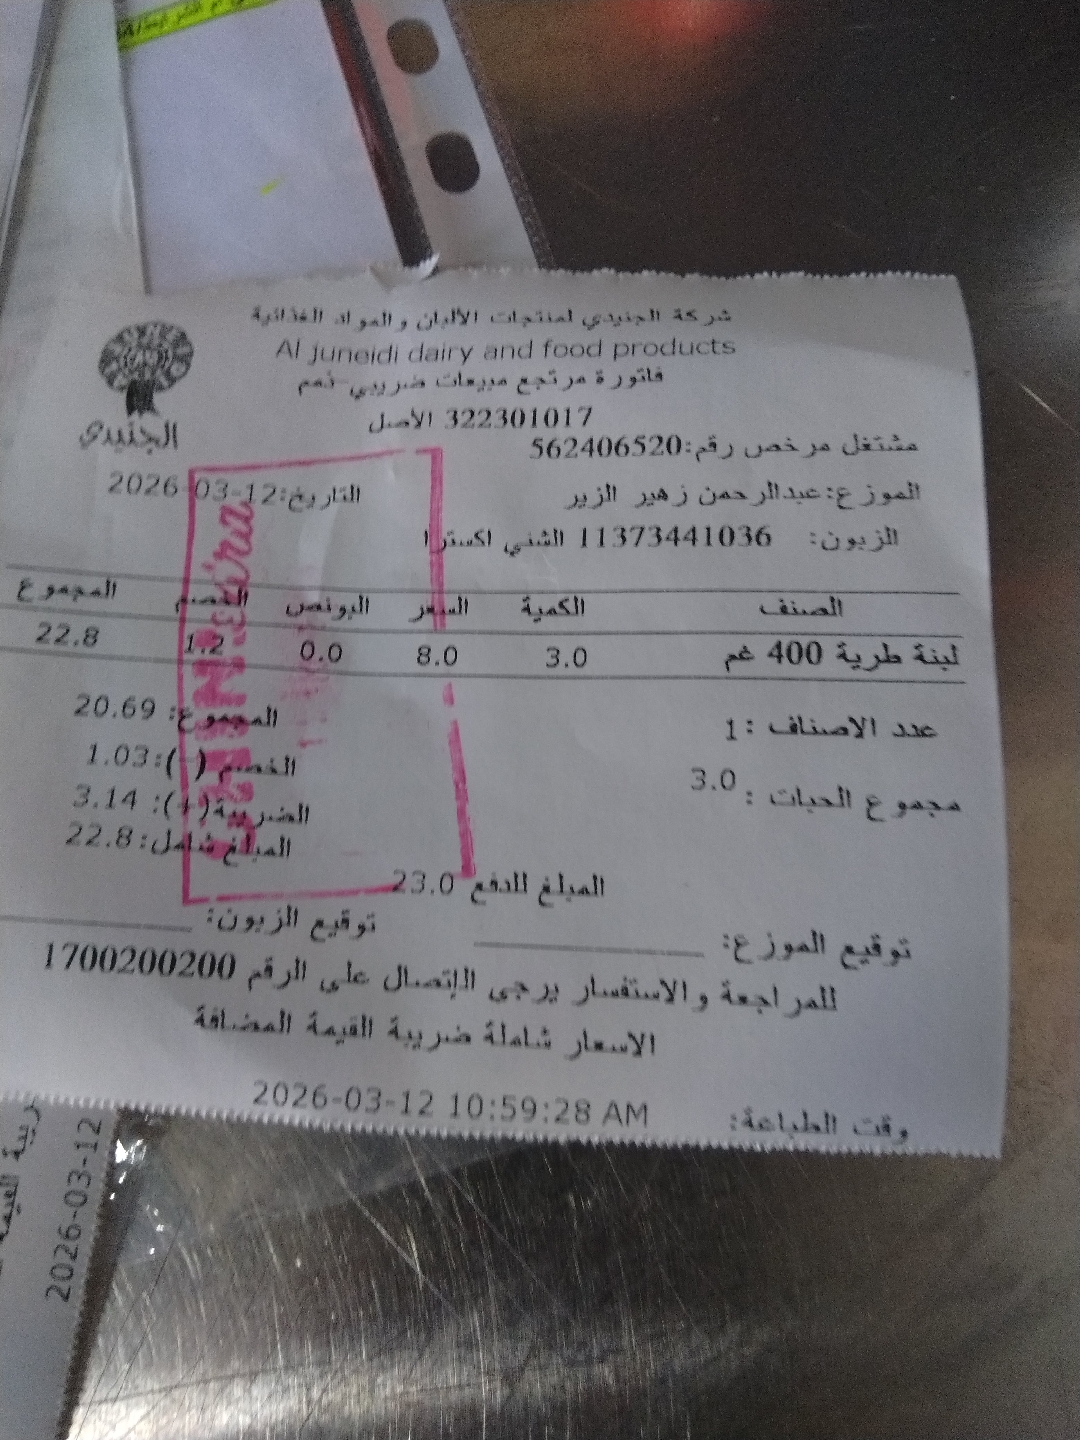 شركة الجنيدي لمنتجات الألبان والمواد الغذائية
Al juneidi dairy and food products
الجنيدي
فاتورة مرتجع مبيعات ضريبي-ذمم
322301017 الأصل
مشتغل مرخص رقم:562406520
الموزع:عبدالرحمن زهير الزير التاريخ:2026-03-12
الزبون: 11373441036 الشني اكسترا
الصنف الكمية السعر البونص الخصم المجموع
لبنة طرية 400 غم 3.0 8.0 0.0 1.2 22.8
عدد الاصناف :1 المجموع: 20.69
مجموع الحبات : 3.0 الخصم (-):1.03
الضريبة(+): 3.14
المبلغ شامل:22.8
المبلغ للدفع 23.0
توقيع الموزع: توقيع الزبون:
للمراجعة والاستفسار يرجى الإتصال على الرقم 1700200200
الاسعار شاملة ضريبة القيمة المضافة
وقت الطباعة: 2026-03-12 10:59:28 AM
2026-03-12